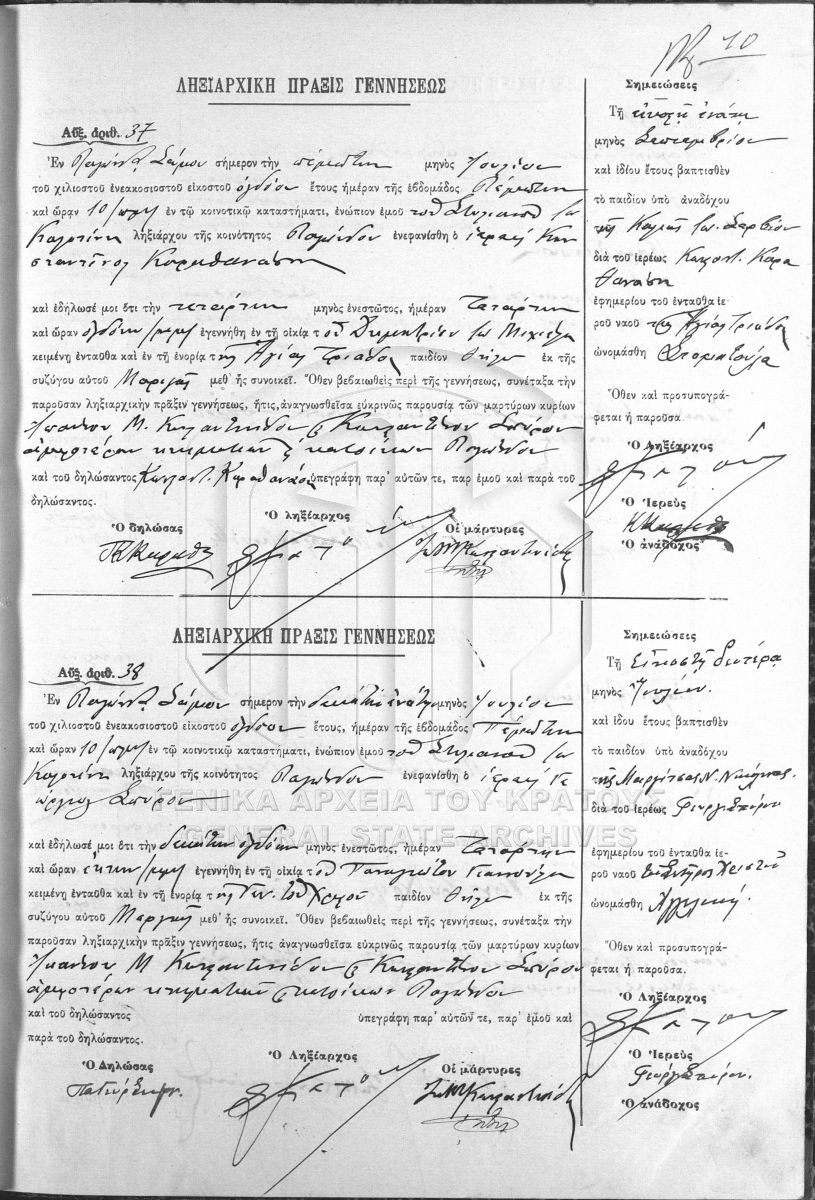 10
ΛΗΞΙΑΡΧΙΚΗ ΠΡΑΞΙΣ ΓΕΝΝΗΣΕΩΣ
Αὔξ. ἀριθ. 37
Ἐν Σάμου σήμερον τὴν πέμπτην μηνὸς Ἰουλίου
τοῦ χιλιοστοῦ ἐνεακοσιοστοῦ εἰκοστοῦ ὀγδόου ἔτους ἡμέραν τῆς ἑβδομάδος Πέμπτην
καὶ ὥραν 10 ἐν τῷ κοινοτικῷ καταστήματι, ἐνώπιον ἐμοῦ τοῦ Στυλιανοῦ Ἰω
ληξιάρχου τῆς κοινότητος ἐνεφανίσθη ὁ ἱερεὺς Κων
σταντῖνος Καραθανάσης
καὶ ἐδήλωσέ μοι ὅτι τὴν τετάρτην μηνὸς ἐνεστῶτος, ἡμέραν Τετάρτην
καὶ ὥραν ὀγδόην ἐγεννήθη ἐν τῇ οἰκίᾳ τοῦ Δημητρίου Ἰω
κειμένῃ ἐνταῦθα καὶ ἐν τῇ ἐνορίᾳ τῆς Ἁγίας Τριάδος παιδίον θῆλυ ἐκ τῆς
συζύγου αὐτοῦ μεθ' ἧς συνοικεῖ. Ὅθεν βεβαιωθεὶς περὶ τῆς γεννήσεως, συνέταξα τὴν
παροῦσαν ληξιαρχικὴν πρᾶξιν γεννήσεως, ἥτις, ἀναγνωσθεῖσα εὐκρινῶς παρουσίᾳ τῶν μαρτύρων κυρίων
Μ. Κωνσταντινίδου κ Κωνσταντίνου Σπύρου
ἀμφοτέρων κτηματιῶν κ κατοίκων
καὶ τοῦ δηλώσαντος Κωνσταντ. Καραθανάση ὑπεγράφη παρ' αὐτῶν τε, παρ ἐμοῦ καὶ παρὰ τοῦ
δηλώσαντος.
Ὁ δηλώσας
Ὁ ληξίαρχος
Οἱ μάρτυρες
Σημειώσεις
Τῇ εἰκοστῇ ἐνάτῃ
μηνὸς Σεπτεμβρίου
καὶ ἰδίου ἔτους βαπτισθὲν
τὸ παιδίον ὑπὸ ἀναδόχου
τῆς Ἰω.
διὰ τοῦ ἱερέως Κωνσταντ. Καρα
θανάση
ἐφημερίου τοῦ ἐνταῦθα ἱε-
ροῦ ναοῦ τῆς Ἁγίας Τριάδος
ὠνομάσθη Σταματούλα
Ὅθεν καὶ προσυπογρά-
φεται ἡ παροῦσα.
Ὁ Ληξίαρχος
Ὁ Ἱερεὺς
Ὁ ἀνάδοχος
ΛΗΞΙΑΡΧΙΚΗ ΠΡΑΞΙΣ ΓΕΝΝΗΣΕΩΣ
Αὔξ. ἀριθ. 38
Ἐν Σάμου σήμερον τὴν δεκάτην ἐνάτην μηνὸς Ἰουλίου
τοῦ χιλιοστοῦ ἐνεακοσιοστοῦ εἰκοστοῦ ὀγδόου ἔτους, ἡμέραν τῆς ἑβδομάδος Πέμπτην
καὶ ὥραν 10 ἐν τῷ κοινοτικῷ καταστήματι, ἐνώπιον ἐμοῦ τοῦ Στυλιανοῦ Ἰω
ληξιάρχου τῆς κοινότητος ἐνεφανίσθη ὁ ἱερεὺς Γε
ώργιος Σπύρου
καὶ ἐδήλωσέ μοι ὅτι τὴν δεκάτην ὀγδόην μηνὸς ἐνεστῶτος, ἡμέραν Τετάρτην
καὶ ὥραν ἕκτην ἐγεννήθη ἐν τῇ οἰκίᾳ τοῦ Παναγιώτου
κειμένῃ ἐνταῦθα καὶ ἐν τῇ ἐνορίᾳ τῆς Γεν. τοῦ Χριστοῦ παιδίον θῆλυ ἐκ τῆς
συζύγου αὐτοῦ μεθ' ἧς συνοικεῖ. Ὅθεν βεβαιωθεὶς περὶ τῆς γεννήσεως, συνέταξα τὴν
παροῦσαν ληξιαρχικὴν πρᾶξιν γεννήσεως, ἥτις ἀναγνωσθεῖσα εὐκρινῶς παρουσίᾳ τῶν μαρτύρων κυρίων
Μ Κωνσταντινίδου κ Κωνσταντίνου Σπύρου
ἀμφοτέρων κτηματιῶν κ κατοίκων
καὶ τοῦ δηλώσαντος ὑπεγράφη παρ' αὐτῶν τε, παρ' ἐμοῦ καὶ
παρὰ τοῦ δηλώσαντος.
Ὁ Δηλώσας
Ὁ Ληξίαρχος
Οἱ μάρτυρες
Σημειώσεις
Τῇ Εἰκοστῇ δευτέρᾳ
μηνὸς Ἰουλίου
καὶ ἰδίου ἔτους βαπτισθὲν
τὸ παιδίον ὑπὸ ἀναδόχου
τῆς Ν.
διὰ τοῦ ἱερέως Γεωργ. Σπύρου
ἐφημερίου τοῦ ἐνταῦθα ἱε-
ροῦ ναοῦ Χριστοῦ
ὠνομάσθη Ἀγγελικὴ
Ὅθεν καὶ προσυπογρά-
φεται ἡ παροῦσα.
Ὁ Ληξίαρχος
Ὁ Ἱερεὺς
Γεώργ Σπύρου.
Ὁ ἀνάδοχος
ΓΕΝΙΚΑ ΑΡΧΕΙΑ ΤΟΥ ΚΡΑΤΟΥΣ
GENERAL STATE ARCHIVES